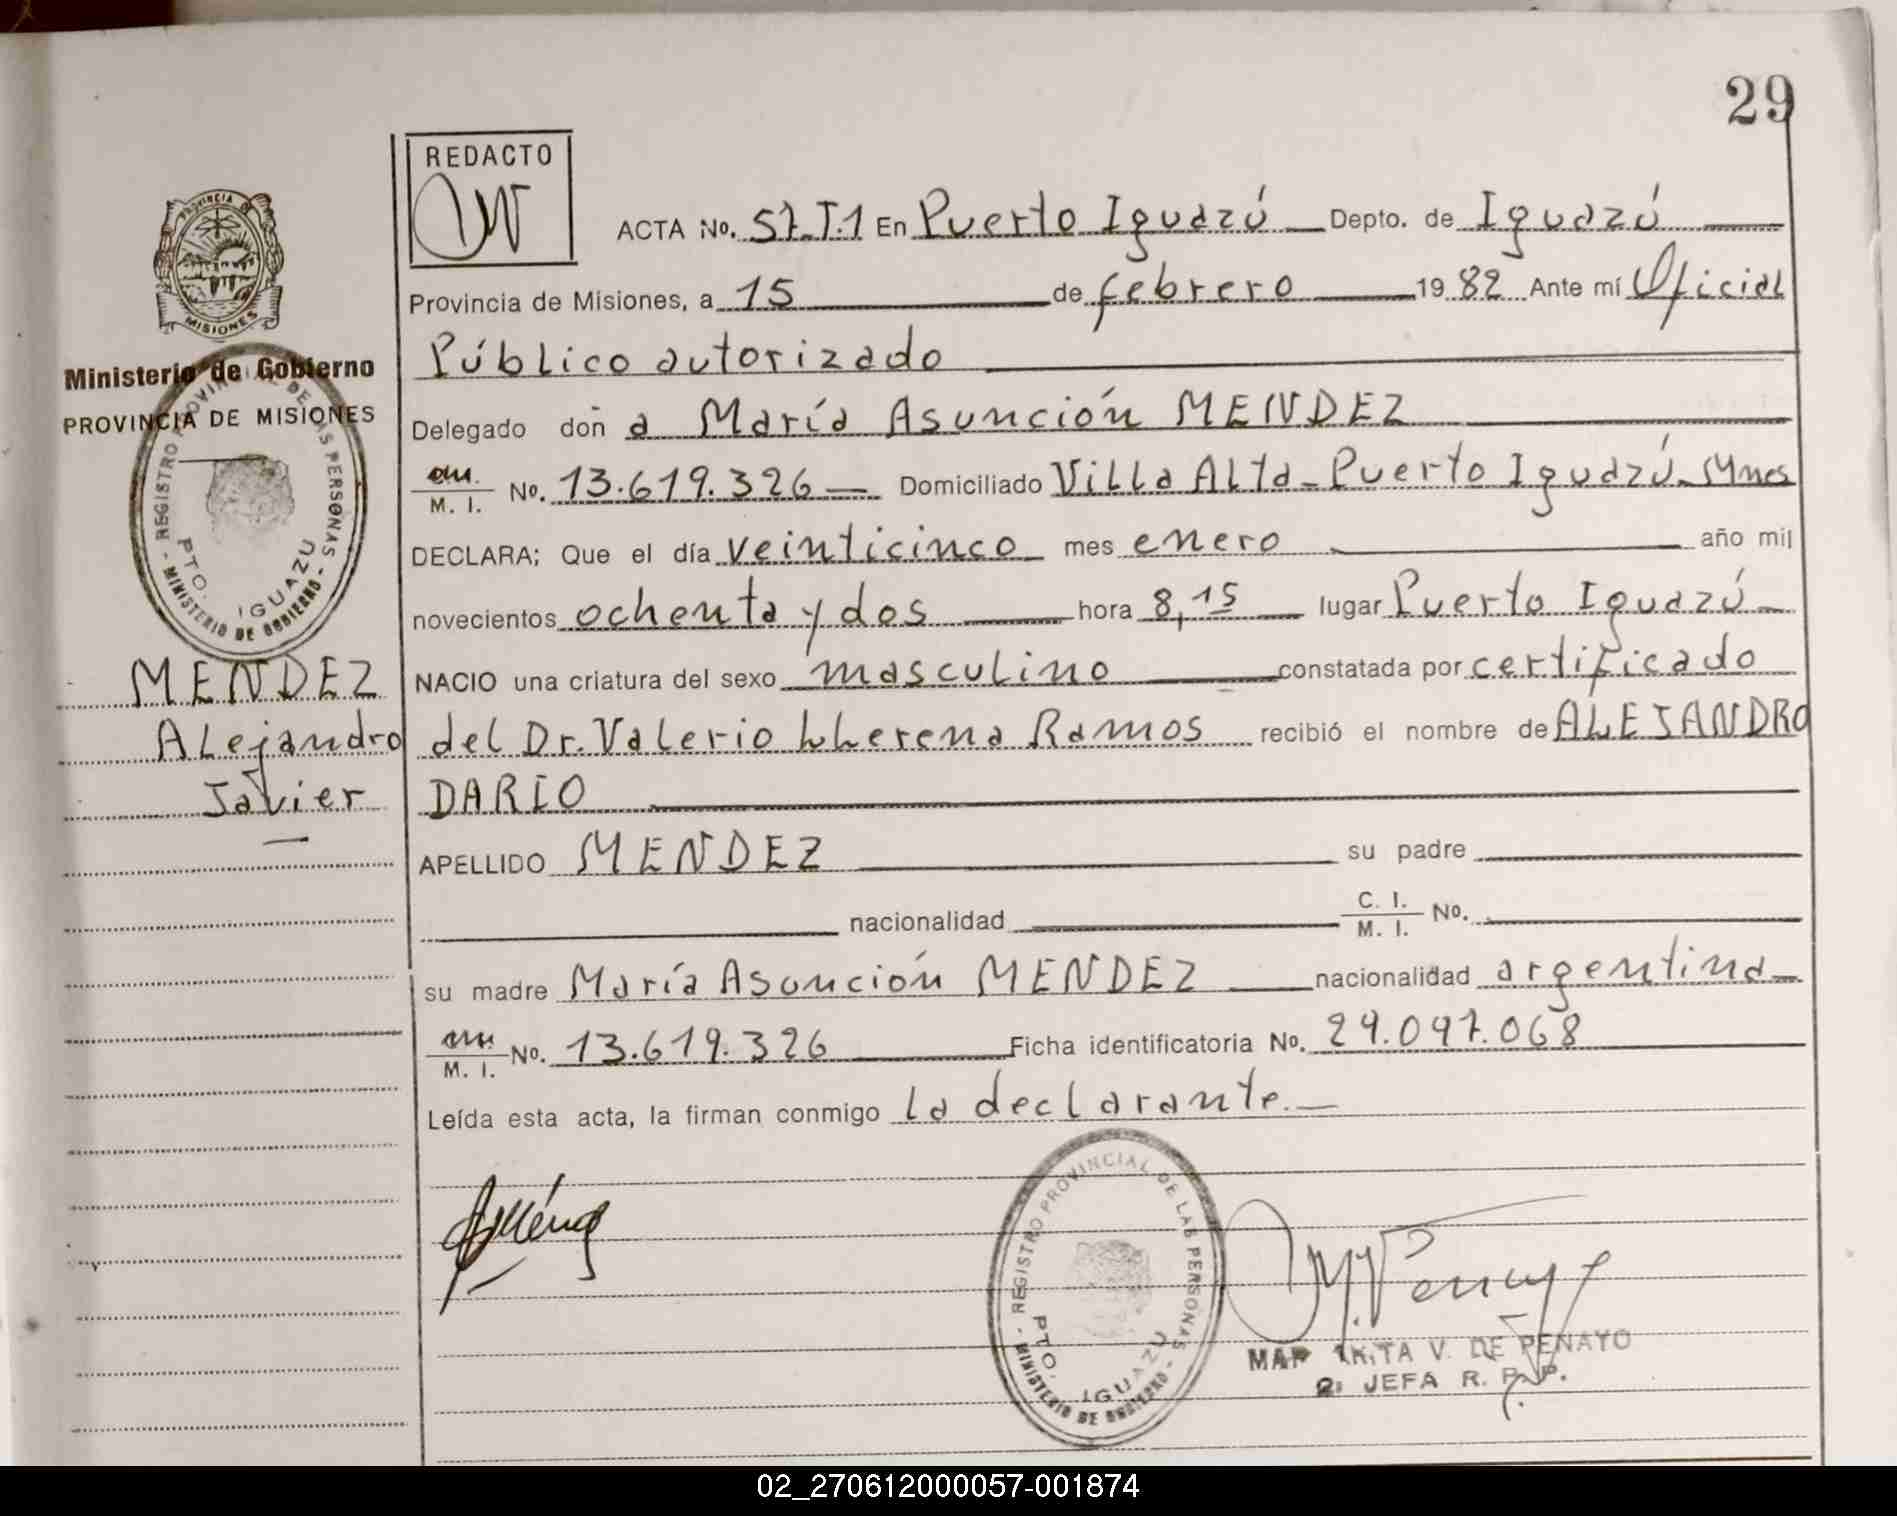 29
REDACTO
ACTA No. 57.T.1 En Puerto Iguazú Depto. de Iguazú
Provincia de Misiones, a 15 de febrero 1982 Ante mí Oficial
Público autorizado
Delegado doñ a María Asunción MENDEZ
M. I. No. 13.619.326 Domiciliado Villa Alta - Puerto Iguazú - Mnes
DECLARA; Que el día veinticinco mes enero año mil
novecientos ochenta y dos hora 8,15 lugar Puerto Iguazú
NACIO una criatura del sexo masculino constatada por certificado
del Dr. Valerio Llerena Ramos recibió el nombre de ALEJANDRO
DARIO
APELLIDO MENDEZ su padre
nacionalidad C. I. M. I. No.
su madre María Asunción MENDEZ nacionalidad argentina
M. I. No. 13.619.326 Ficha identificatoria No. 29.097.068
Leída esta acta, la firman conmigo la declarante.
PROVINCIA
MISIONES
Ministerio de Gobierno
PROVINCIA DE MISIONES
REGISTRO PROVINCIAL DE LAS PERSONAS
PTO. IGUAZU
MINISTERIO DE GOBIERNO
MENDEZ
Alejandro
Javier
REGISTRO PROVINCIAL DE LAS PERSONAS
PTO. IGUAZU
MINISTERIO DE GOBIERNO
V. DE PENAYO
JEFA R. P. P.
02_270612000057-001874